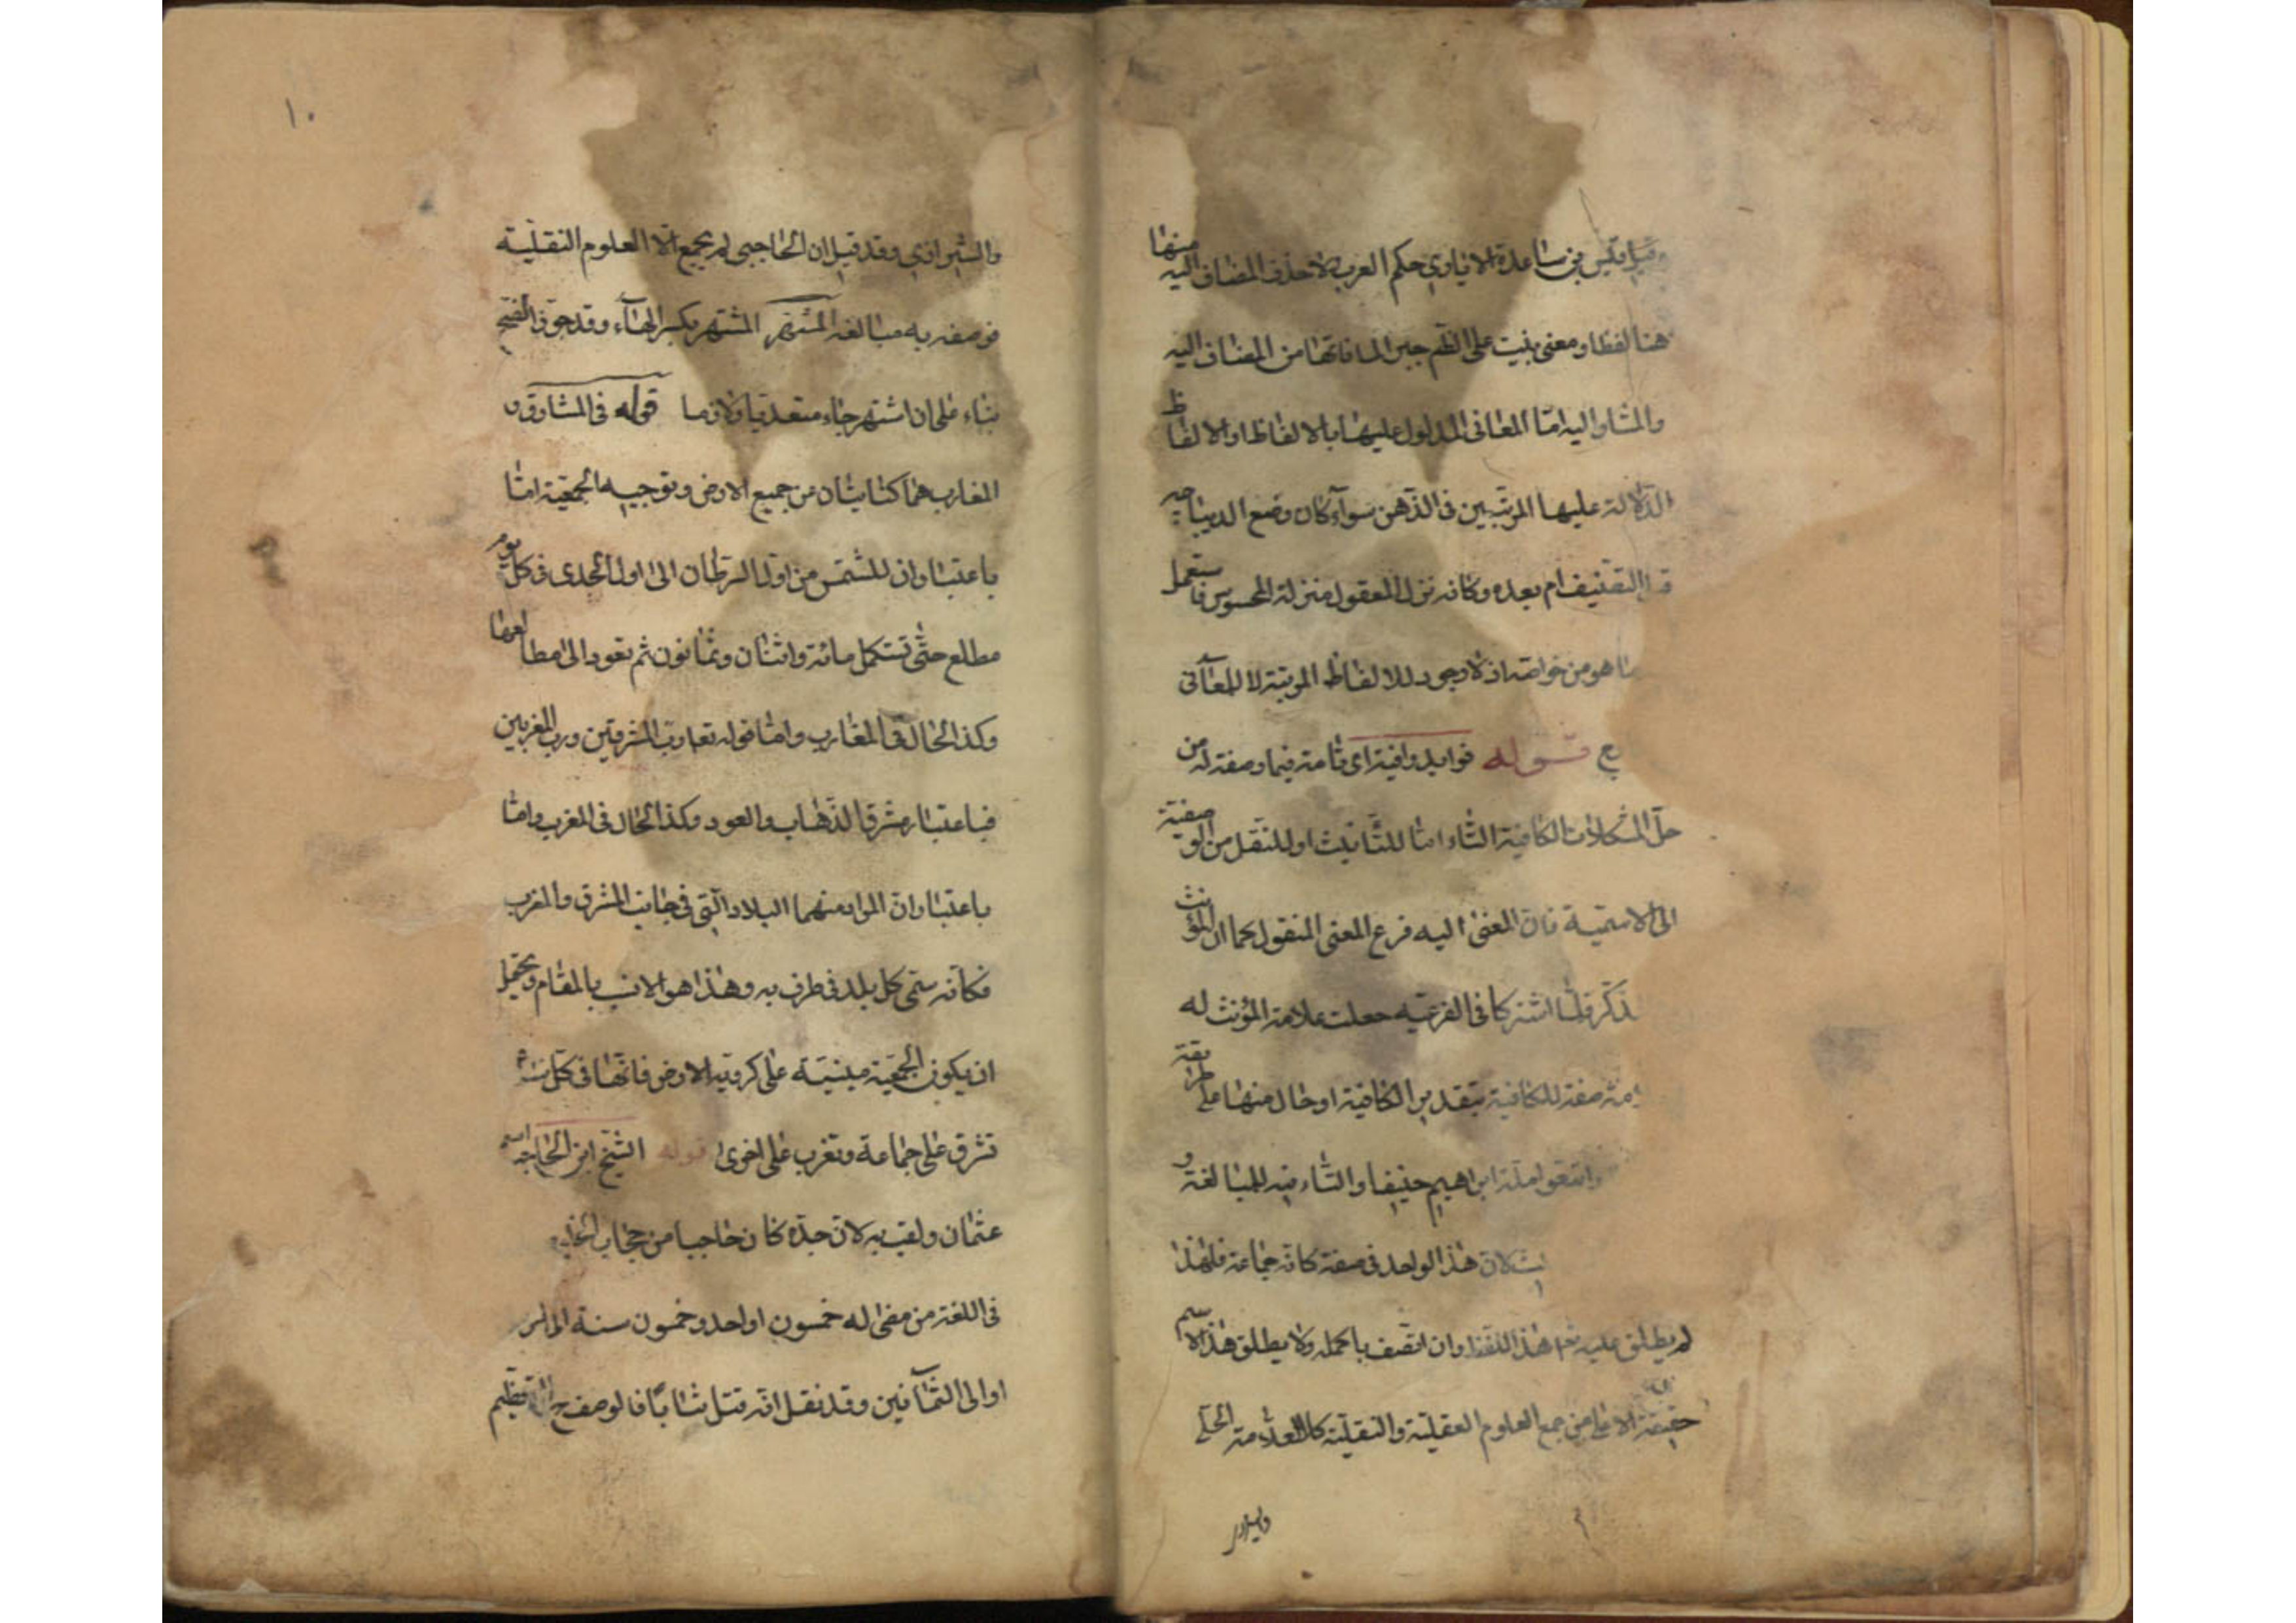 وقيل قس بن ساعدة الايادي حكم العرب لا حذف المضاف اليه منها
هنا لفظا ومعنى بنيت على الضم جبرا لما فاتها من المضاف اليه
والمشار اليه امّا المعانى المدلول عليها بالالفاظ او الالفاظ
الدّالة عليها المرتّبين فى الذّهن سواء كان وضع الديباجه
التصنيف ام بعده وكانه نزل المعقول منزلة المحسوس فاستعمل
ما هو من خواصه اذ لا وجود للالفاظ المرتبة لا للمعانى
قوله فوايد وافية اى تامة فيما وصفته له من
حلّ المشكلات الكافية التاء امّا للتّانيث او للنّقل من الوصفيّة
الى الاسميّة فان المعنى اليه فرع المعنى المنقول كما ان المؤنث
ذكّر فلمّا اشتركا فى الفرعيّه جعلت علامة المؤنث له
صفة للكافية بتقدير الكافية او حال منها على طريقة
واتبعوا ملة ابراهيم حنيفا والتّاء فيه للمبالغة و
لان هذا الواحد فى صفته كانّه جماعة فلهذا
لم يطلق عليه هذا اللّفظ وان اتّصف باكمله ولا يطلق هذا الاسم
حقيقة الا على من جمع العلوم العقليّة والنقليّة كالعلّامة الحلّى
١٠
والشيرازي وقد قيل ان الحاجبى لم يجمع الّا العلوم النقليّة
فوصفه به مبالغة المشتهر المشتهر بكسر الهاء وقد جوّز الفتح
بناء على ان اشتهر جاء متعديا ولازما قوله فى المشارق و
المغارب هما كنايتان من جميع الارض وتوجيه الجمعيّة امّا
باعتبار ان للشّمس من اول السرطان الى اول الجدى فى كل يوم
مطلع حتّى تستكمل مائة واثنان وثمانون ثم تعود الى مطالعها
وكذا الحال فى المغارب وامّا قوله تعا ربّ المشرقين وربّ المغربين
فباعتبار مشرق الذّهاب والعود وكذا الحال فى المغرب وامّا
باعتبار انّ المراد منهما البلاد الّتى فى جانب المشرق والمغرب
فكانّه سمّى كل بلد فى طرف به وهذا هو الانسب بالمقام ويحتمل
ان يكون الجمعيّة مبنيّة على كرويّة الارض فانّها فى كلّ
تشرق على جماعة وتغرب على اخرى قوله الشّيخ ابن الحاجب اسمه
عثمان ولقب به لان جدّه كان حاجبا من حجاب
فى اللغة من مضى له خمسون او احد وخمسون سنة الى
او الى الثّمانين وقد نقل انّه قتل شابّا فالوصف ح للتّعظيم